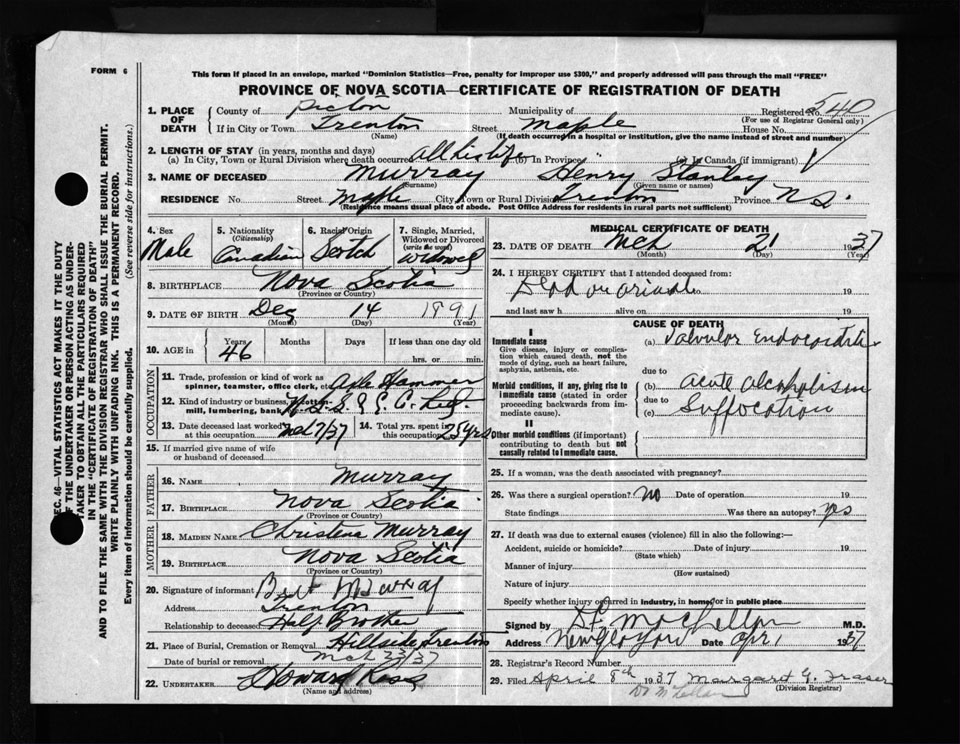 FORM 6
This form if placed in an envelope, marked "Dominion Statistics—Free, penalty for improper use $300," and properly addressed will pass through the mail "FREE"
PROVINCE OF NOVA SCOTIA—CERTIFICATE OF REGISTRATION OF DEATH
1. PLACE OF DEATH
County of Pictou Municipality of Registered No. 540
(For use of Registrar General only)
If in City or Town Trenton Street Maple House No.
(Name) (If death occurred in a hospital or institution, give the name instead of street and number)
2. LENGTH OF STAY (in years, months and days)
(a) In City, Town or Rural Division where death occurred All his life (b) In Province " (c) In Canada (if immigrant)
3. NAME OF DECEASED Murray Henry Stanley
(Surname) (Given name or names)
RESIDENCE No. Street Maple City, Town or Rural Division Trenton Province N S.
(Residence means usual place of abode. Post Office Address for residents in rural parts not sufficient)
SEC. 46—VITAL STATISTICS ACT MAKES IT THE DUTY
OF THE UNDERTAKER OR PERSON ACTING AS UNDER-
TAKER TO OBTAIN ALL THE PARTICULARS REQUIRED
IN THE "CERTIFICATE OF REGISTRATION OF DEATH"
AND TO FILE THE SAME WITH THE DIVISION REGISTRAR WHO SHALL ISSUE THE BURIAL PERMIT.
WRITE PLAINLY WITH UNFADING INK. THIS IS A PERMANENT RECORD.
Every item of Information should be carefully supplied. (See reverse side for instructions.)
4. Sex Male
5. Nationality (Citizenship) Canadian
6. Racial Origin Scotch
7. Single, Married, Widowed or Divorced (write the word) Widowed
8. BIRTHPLACE Nova Scotia
(Province or Country)
9. DATE OF BIRTH Dec 14 1891
(Month) (Day) (Year)
10. AGE in Years 46 Months Days If less than one day old
hrs. or min.
OCCUPATION
11. Trade, profession or kind of work as spinner, teamster, office clerk, etc. Axle Hammer
12. Kind of industry or business, as cotton-mill, lumbering, bank,
13. Date deceased last worked at this occupation 7/37
14. Total yrs. spent in this occupation 25 yrs
15. If married give name of wife or husband of deceased
FATHER
16. NAME Murray
17. BIRTHPLACE Nova Scotia
(Province or Country)
MOTHER
18. MAIDEN NAME Christene Murray
19. BIRTHPLACE Nova Scotia
(Province or Country)
20. Signature of informant Murray
Address Trenton
Relationship to deceased Half Brother
21. Place of Burial, Cremation or Removal Hillside Trenton
Date of burial or removal Mch 23/37
22. UNDERTAKER Howard Ross
(Name and address)
MEDICAL CERTIFICATE OF DEATH
23. DATE OF DEATH Mch 21 1937
(Month) (Day) (Year)
24. I HEREBY CERTIFY that I attended deceased from:
Dead on arrival 19
and last saw h alive on 19
CAUSE OF DEATH
I
Immediate cause
Give disease, injury or complication which caused death, not the mode of dying, such as heart failure, asphyxia, asthenia, etc.
(a) Valvular Endocarditis
due to
Morbid conditions, if any, giving rise to Immediate cause (stated in order proceeding backwards from immediate cause).
(b) acute alcoholism
due to
(c) Suffocation
II
Other morbid conditions (if important) contributing to death but not causally related to immediate cause.
25. If a woman, was the death associated with pregnancy?
26. Was there a surgical operation? No Date of operation 19
State findings Was there an autopsy? yes
27. If death was due to external causes (violence) fill in also the following:—
Accident, suicide or homicide? Date of injury 19
(State which)
Manner of injury
(How sustained)
Nature of injury
Specify whether injury occurred in industry, in home, or in public place
Signed by M.D.
Address New Glasgow Date Apr 1 1937
28. Registrar's Record Number
29. Filed April 8th 1937 Margaret G. Fraser
(Division Registrar)
Dr McLellan